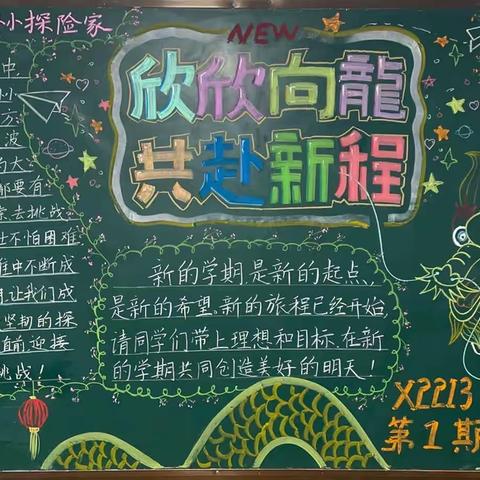 小探险家
中
方
波
的大
都要有
去挑战
不怕困难
难中不断成
让我们成
坚韧的探
直前迎接
挑战！
NEW
欣欣向龍
共赴新程
新的学期,是新的起点,
是新的希望。新的旅程已经开始,
请同学们带上理想和目标,在新
的学期共同创造美好的明天！
X2213
第1期